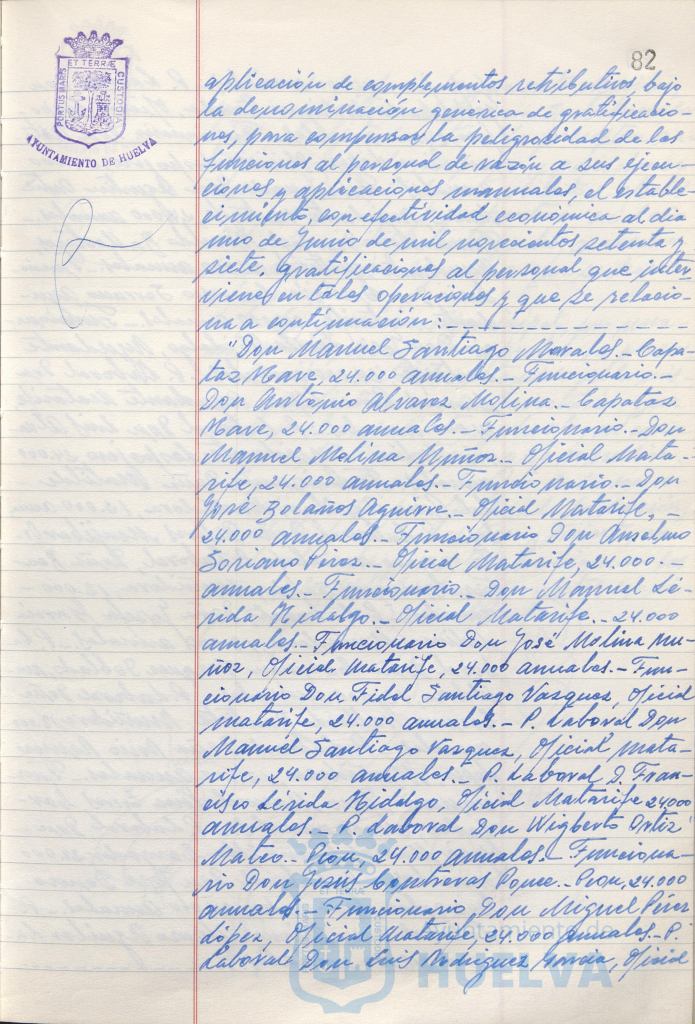 82
PORTUS MARIS ET TERRÆ CUSTODIA
AYUNTAMIENTO DE HUELVA
aplicación de complementos retributivos, bajo
la denominación genérica de gratificacio-
nes, para compensar la peligrosidad de las
funciones al personal de razón a sus ejecu-
ciones y aplicaciones manuales, el estable-
cimiento, con efectividad económica al día
uno de Junio de mil novecientos setenta y
siete, gratificaciones al personal que inter-
viene en tales operaciones y que se relacio-
na a continuación:
"Don Manuel Santiago Morales.- Capa-
taz Nave, 24.000 anuales.- Funcionario.-
Don Antonio Alvarez Molina.- Capataz
Nave, 24.000 anuales.- Funcionario.- Don
Manuel Molina Muñoz.- Oficial Mata-
rife, 24.000 anuales.- Funcionario.- Don
José Bolaños Aguirre.- Oficial Matarife,-
24.000 anuales.- Funcionario Don Anselmo
Soriano Pérez.- Oficial Matarife, 24.000.-
anuales.- Funcionario.- Don Manuel Lé-
rida Hidalgo.- Oficial Matarife.- 24.000
anuales.- Funcionario Don José Molina Mu-
ñoz, Oficial Matarife, 24.000 anuales.- Fun-
cionario Don Fidel Santiago Vázquez, Oficial
matarife, 24.000 anuales.- P. Laboral Don
Manuel Santiago Vazquez, Oficial mata-
rife, 24.000 anuales.- P. Laboral D. Fran-
cisco Lérida Hidalgo, Oficial Matarife 24.000
anuales.- P. Laboral Don Wigberto Ortiz
Mateo.- Peón, 24.000 anuales.- Funciona-
rio Don Jesús Contreras Ponce.- Peón, 24.000
anuales.- Funcionario Don Miguel Pérez
López, Oficial Matarife, 24.000 anuales.- P.
Laboral Don Luis Rodríguez García, Oficial
Ayuntamiento de
HUELVA